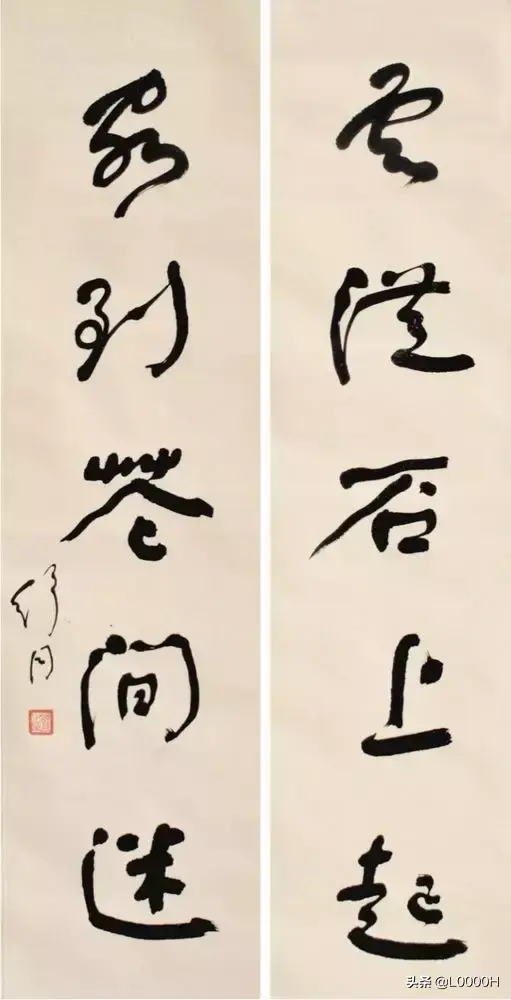 云從石上起
客到花間迷
舒同
头条 @L0000H